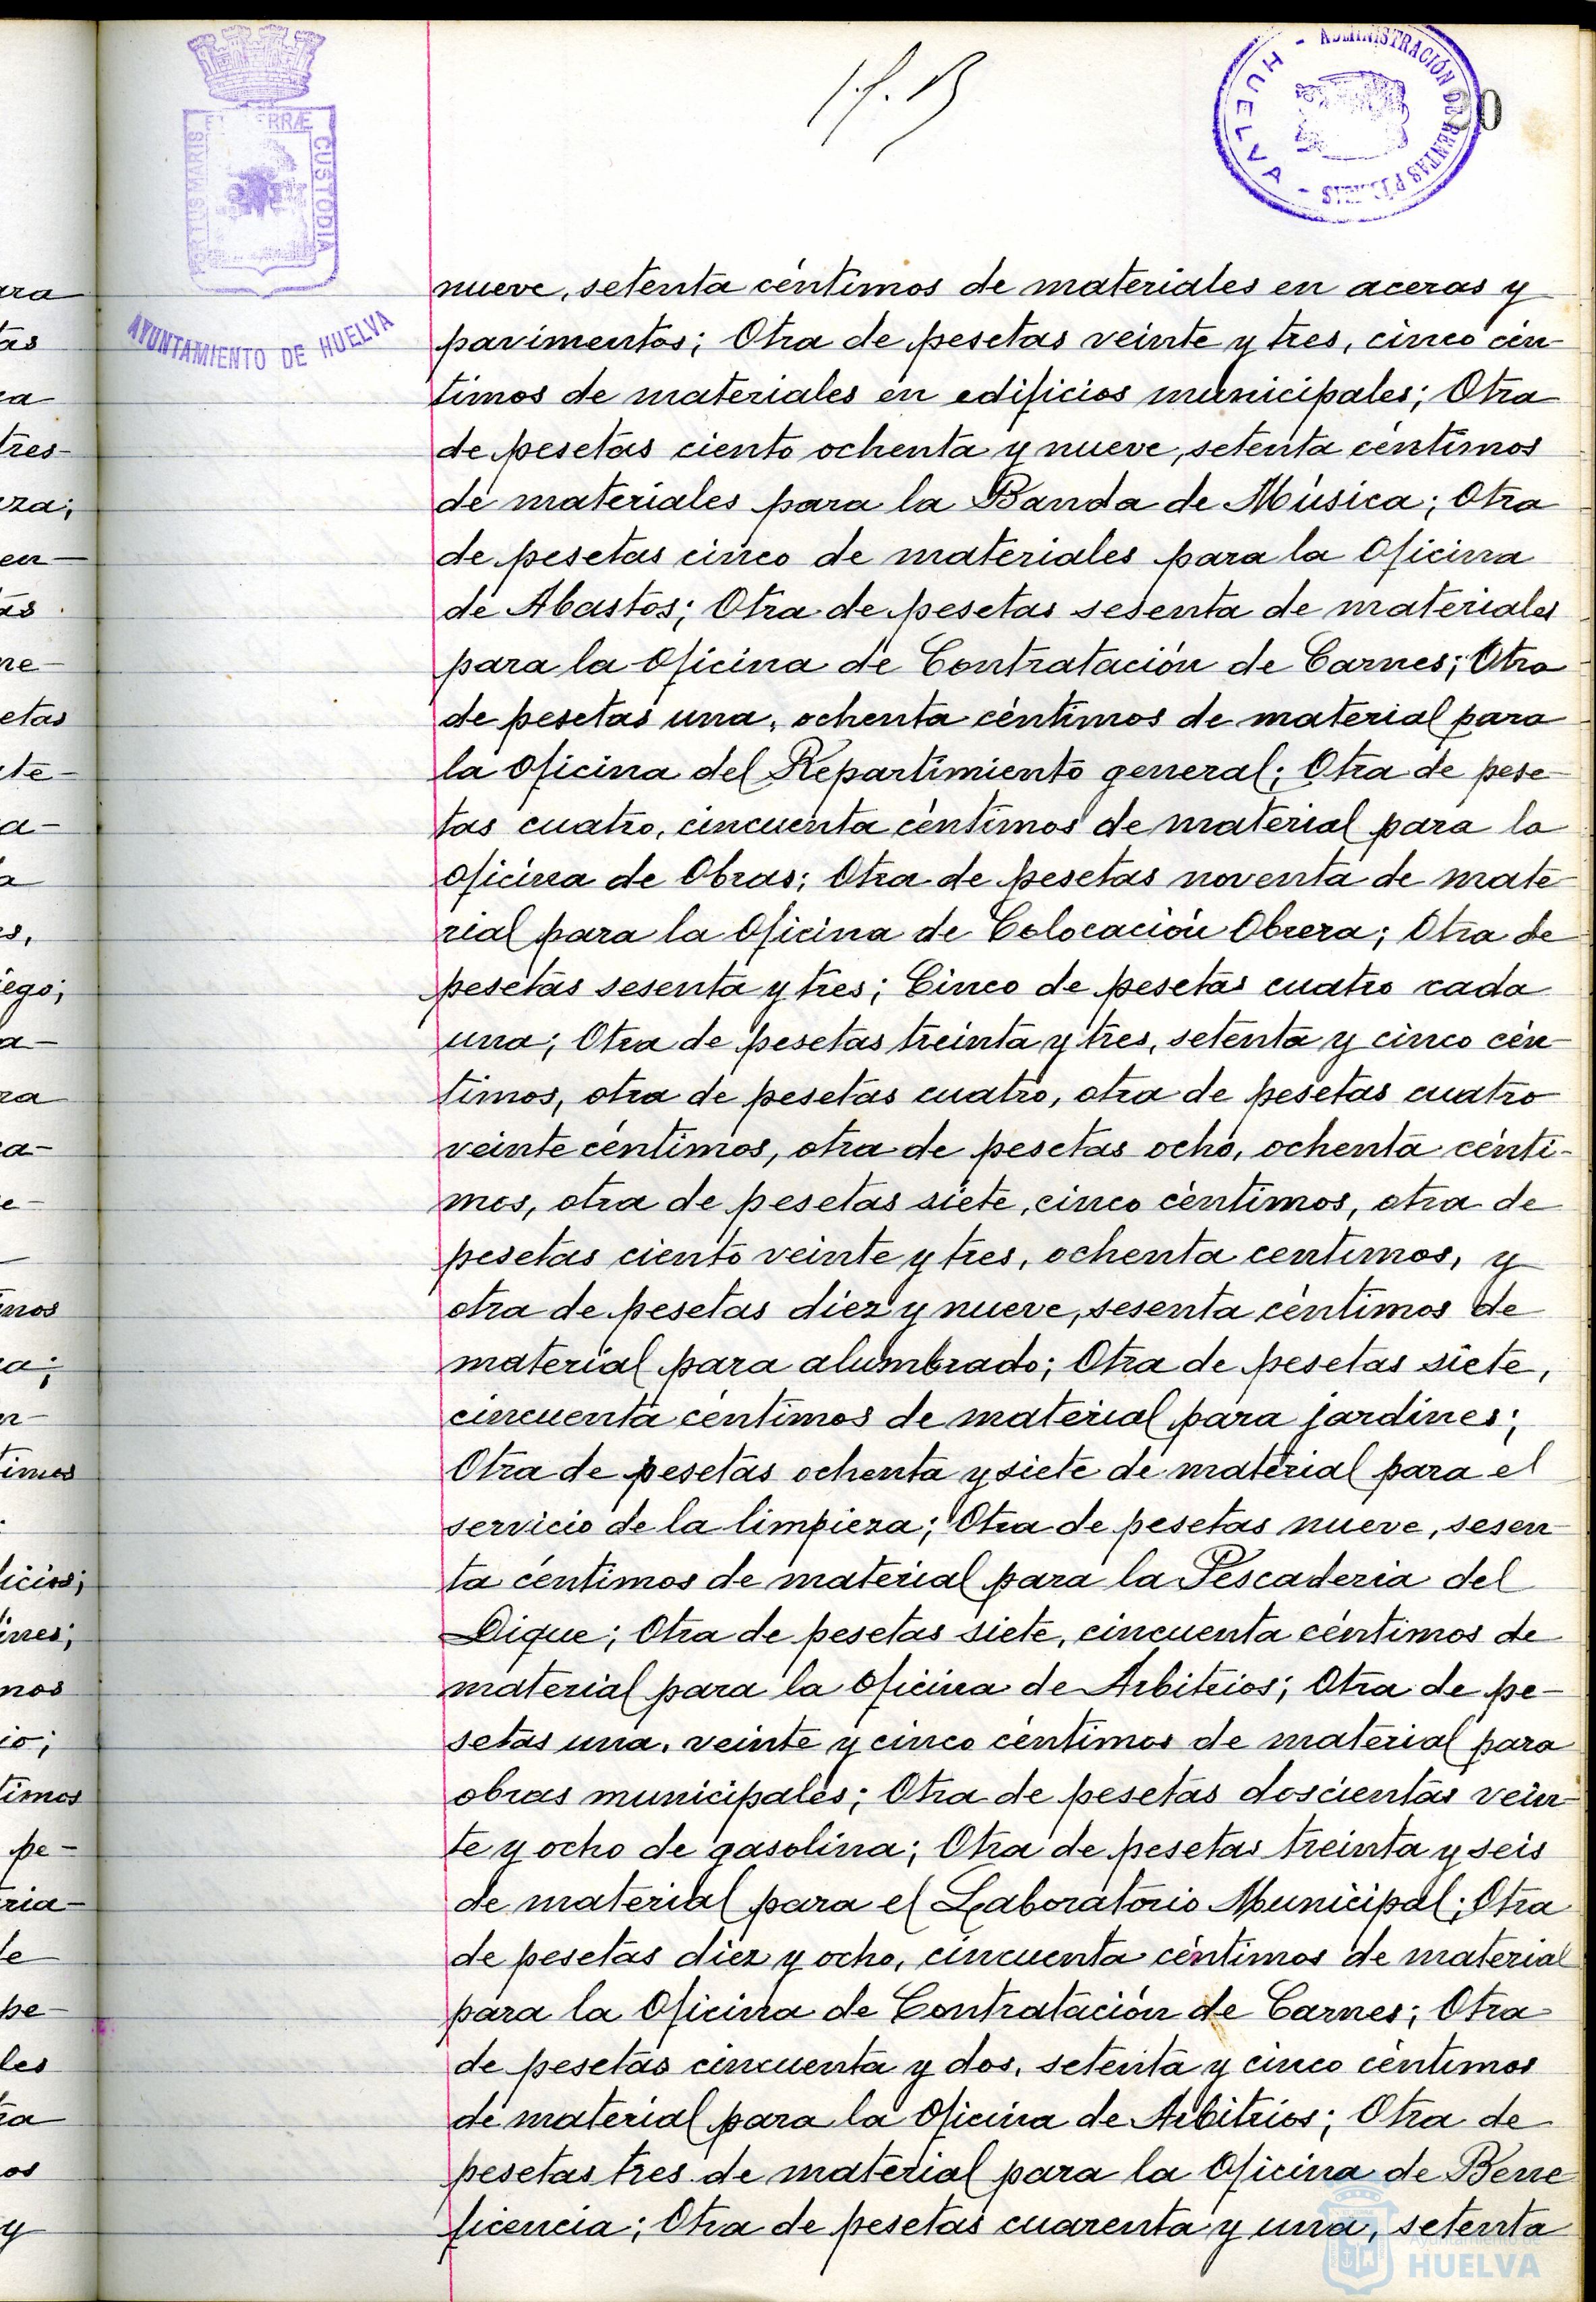 ADMINISTRACIÓN DE RENTAS
HUELVA
CUSTODIA
AYUNTAMIENTO DE HUELVA
nueve, setenta céntimos de materiales en aceras y
pavimentos; Otra de pesetas veinte y tres, cinco cén-
timos de materiales en edificios municipales; Otra
de pesetas ciento ochenta y nueve, setenta céntimos
de materiales para la Banda de Música; Otra
de pesetas cinco de materiales para la Oficina
de Abastos; Otra de pesetas sesenta de materiales
para la Oficina de Contratación de Carnes; Otra
de pesetas una, ochenta céntimos de material para
la Oficina del Repartimiento general; Otra de pese-
tas cuatro, cincuenta céntimos de material para la
Oficina de Obras; Otra de pesetas noventa de mate-
rial para la Oficina de Colocación Obrera; Otra de
pesetas sesenta y tres; Cinco de pesetas cuatro cada
una; Otra de pesetas treinta y tres, setenta y cinco cén-
timos, otra de pesetas cuatro, otra de pesetas cuatro
veinte céntimos, otra de pesetas ocho, ochenta cénti-
mos, otra de pesetas siete, cinco céntimos, otra de
pesetas ciento veinte y tres, ochenta centimos, y
otra de pesetas diez y nueve, sesenta céntimos de
material para alumbrado; Otra de pesetas siete,
cincuenta céntimos de material para jardines;
Otra de pesetas ochenta y siete de material para el
servicio de la limpieza; Otra de pesetas nueve, sesen-
ta céntimos de material para la Pescaderia del
Dique; Otra de pesetas siete, cincuenta céntimos de
material para la Oficina de Arbitrios; Otra de pe-
setas una, veinte y cinco céntimos de material para
obras municipales; Otra de pesetas doscientas vein-
te y ocho de gasolina; Otra de pesetas treinta y seis
de material para el Laboratorio Municipal; Otra
de pesetas diez y ocho, cincuenta céntimos de material
para la Oficina de Contratación de Carnes; Otra
de pesetas cincuenta y dos, setenta y cinco céntimos
de material para la Oficina de Arbitrios; Otra de
pesetas tres de material para la Oficina de Bene
ficencia; Otra de pesetas cuarenta y una, setenta
Ayuntamiento de
HUELVA